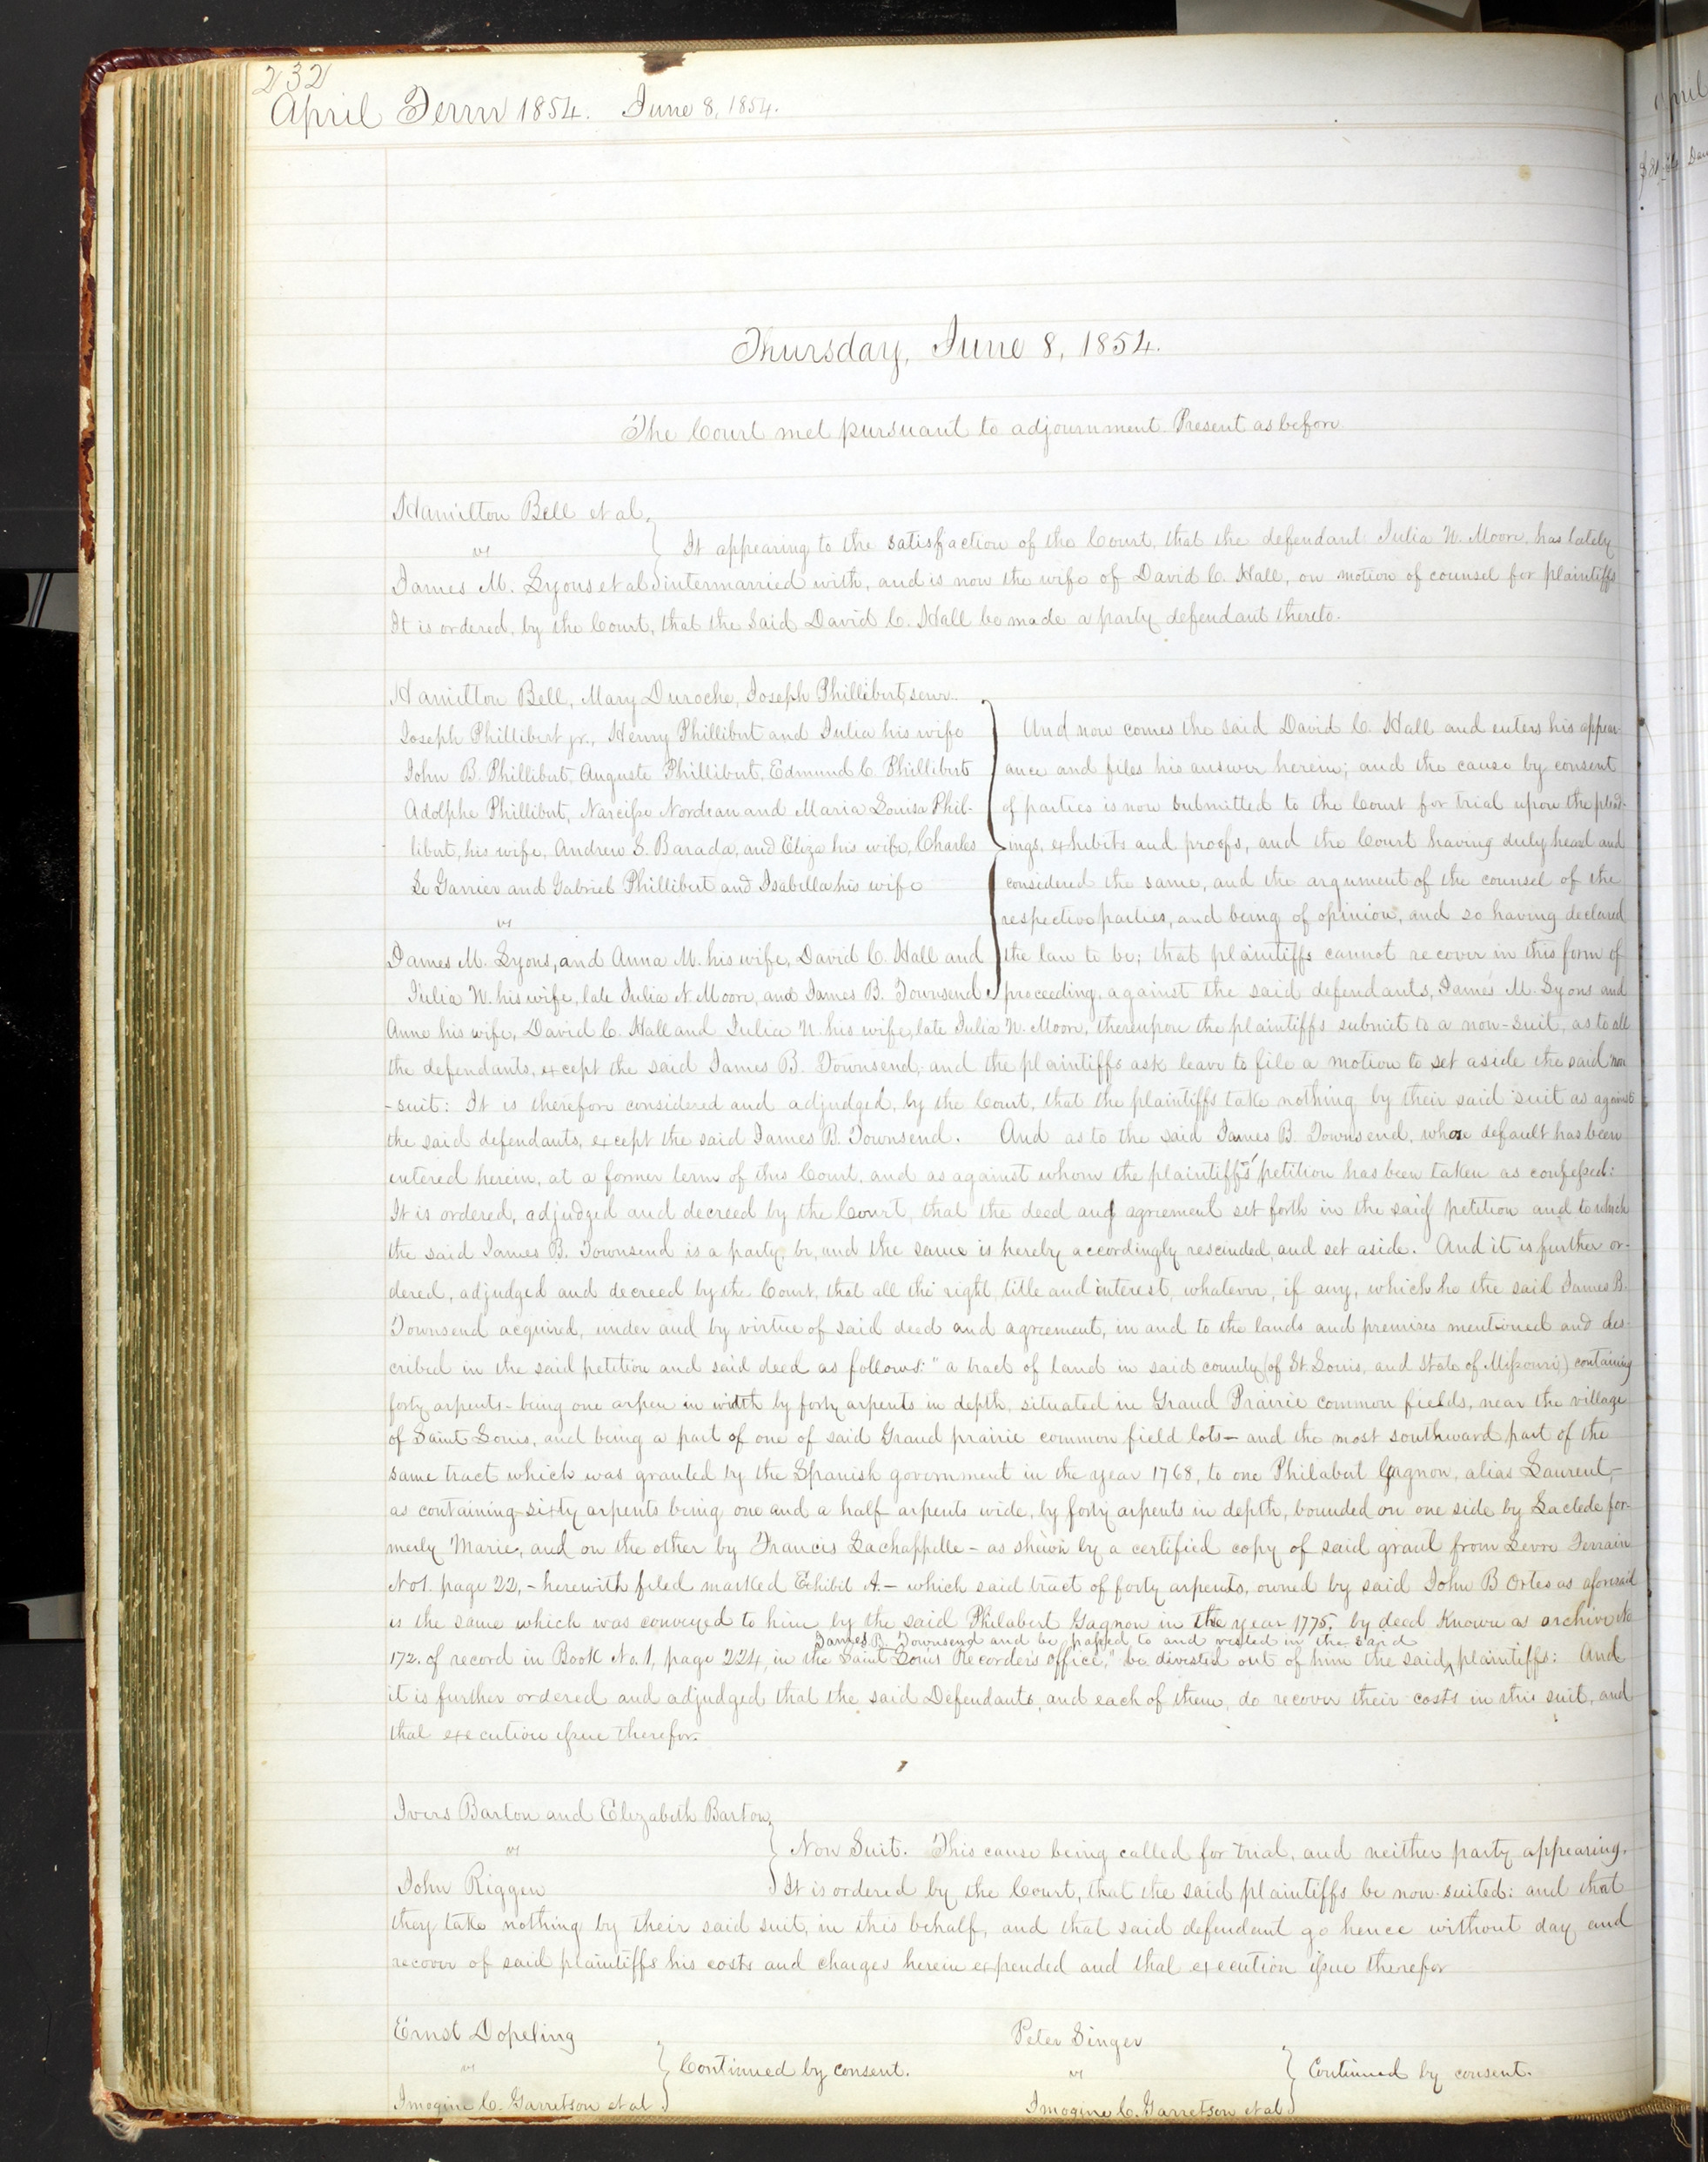 232
April Term 1854. June 8, 1854.
Thursday, June 8, 1854.
The Court met pursuant to adjournment. Present as before
Hamilton Bell et al.
vs
James M. Lyons et al
It appearing to the satisfaction of the Court, that the defendant Julia N. Moore, has lately
intermarried with, and is now the wife of David C. Hall, on motion of counsel for plaintiffs
It is ordered, by the Court, that the said David C. Hall be made a party defendant thereto.
Hamilton Bell, Mary Duroche, Joseph Phillibert, senr.
Joseph Phillibert jr., Henry Phillibert and Julia his wife
John B. Phillibert, Auguste Phillibert, Edmund C. Phillibert
Adolphe Phillibert, Narcisse Nordeau and Maria Louisa Phil-
libert, his wife, Andrew S. Barada, and Eliza his wife, Charles
Le Garrier and Gabriel Phillibert and Isabella his wife
vs
James M. Lyons, and Anna M. his wife, David C. Hall and
Julia N. his wife, late Julia N. Moore, and James B. Townsend
And now comes the said David C. Hall and enters his appear-
ance and files his answer herein; and the cause by consent
of parties is now submitted to the Court for trial upon the plead-
ings, exhibits and proofs, and the Court having duly heard and
considered the same, and the argument of the counsel of the
respective parties, and being of opinion, and so having declared
the law to be; that plaintiffs cannot recover in this form of
proceeding, against the said defendants, James M. Lyons and
Anne his wife, David C. Hall and Julia N. his wife, late Julia N. Moore, thereupon the plaintiffs submit to a non-suit, as to all
the defendants, except the said James B. Townsend, and the plaintiffs ask leave to file a motion to set aside the said non
-suit: It is therefore considered and adjudged, by the Court, that the plaintiffs take nothing by their said suit as against
the said defendants, except the said James B. Townsend. And as to the said James B. Townsend, whose default has been
entered herein, at a former term of this Court, and as against whom the plaintiffs' petition has been taken as confessed:
It is ordered, adjudged and decreed by the Court, that the deed and agreement set forth in the said petition and to which
the said James B. Townsend is a party, be, and the same is hereby accordingly rescinded, and set aside. And it is further or-
dered, adjudged and decreed by the Court, that all the right, title and interest, whatever, if any, which he the said James B.
Townsend acquired, under and by virtue of said deed and agreement, in and to the lands and premises mentioned and des-
cribed in the said petition and said deed as follows: "a tract of land in said county (of St. Louis, and State of Missouri,) containing
forty arpents - being one arpen in width by forty arpents in depth, situated in Grand Prairie common fields, near the village
of Saint Louis, and being a part of one of said Grand prairie common field lots - and the most southward part of the
same tract which was granted by the Spanish government in the year 1768, to one Philabert Gagnon, alias Laurent,
as containing sixty arpents being one and a half arpents wide, by forty arpents in depth, bounded on one side by Laclede for-
merly Marie, and on the other by Francis Lachappelle - as shewn by a certified copy of said grant from Levre Terrain
No 1. page 22, - herewith filed marked Exhibit A. - which said tract of forty arpents, owned by said John B Ortes as aforesaid
is the same which was conveyed to him by the said Philabert Gagnon in the year 1775, by deed Known as archive No
James B. Townsend and be passed to and vested in the said
172. of record in Book No. 1, page 224, in the Saint Louis Recorder's office," be divested out of him the said plaintiffs: And
it is further ordered and adjudged that the said Defendants, and each of them, do recover their costs in this suit, and
that execution issue therefor.
Ivers Barton and Elizabeth Barton,
vs
John Riggen
Non Suit. This cause being called for trial, and neither party appearing,
It is ordered by the Court, that the said plaintiffs be non-suited: and that
they take nothing by their said suit, in this behalf, and that said defendant go hence without day and
recover of said plaintiffs his costs and charges herein expended and that execution issue therefor
Ernst Dopeling
vs
Imogine C. Garretson et al
Continued by consent.
Peter Singer
vs
Imogine C. Garretson et al
Continued by consent.